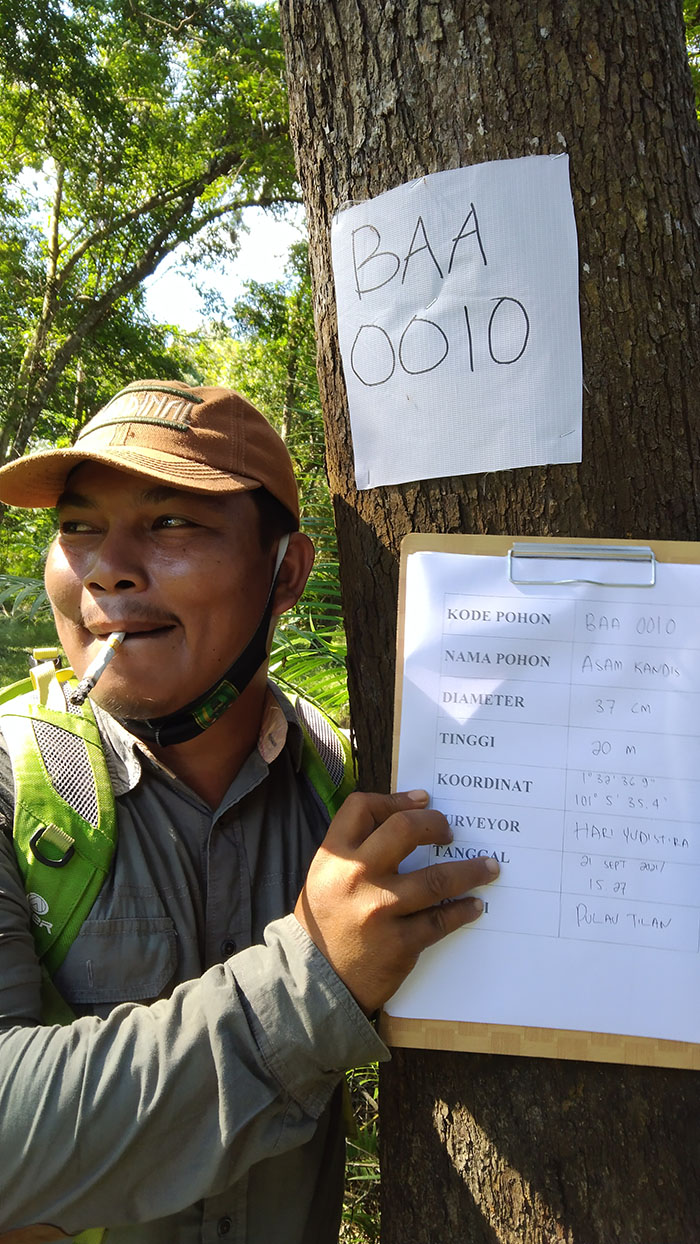 BAA
0010
KODE POHON BAA 0010
NAMA POHON ASAM KANDIS
DIAMETER 37 CM
TINGGI 20 M
KOORDINAT 1° 32' 36.9"
101° 5' 35.4"
SURVEYOR HARI YUDISTIRA
TANGGAL 21 SEPT 2021/
15.27
PULAU TILAN